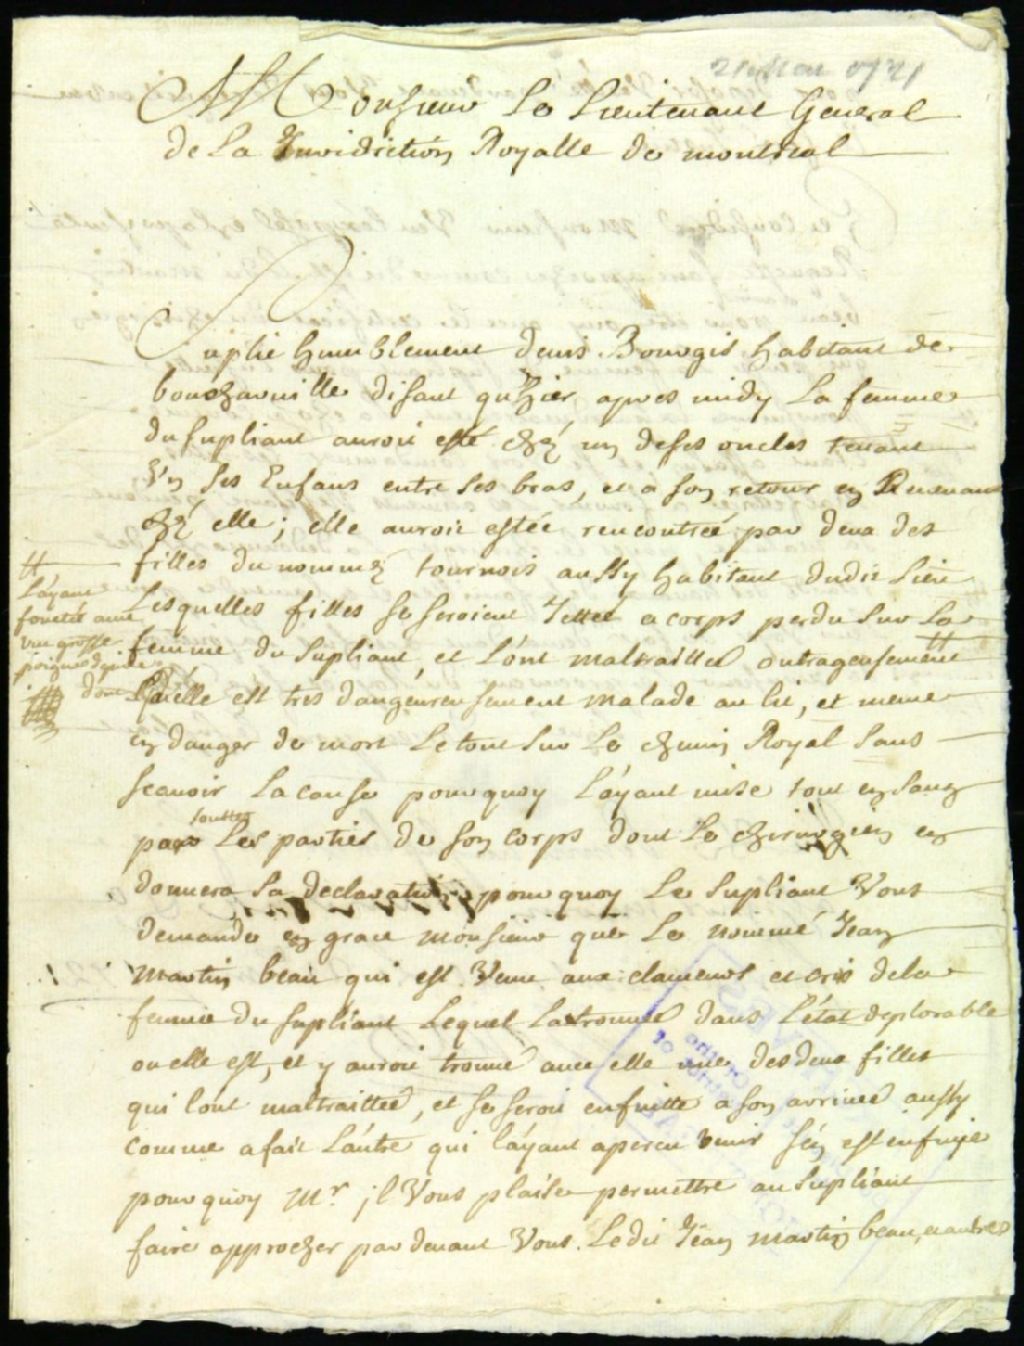 A Monsieur Le Lieutenant General
de La Jurisdiction Royalle de montreal
Suplie humblement denis Bourgis habitant de
boucharville disant qu'hier apres midy La femme
du supliant auroit esté chéz un de ses oncles tenant
un ses Enfans entre ses bras, et a son retour en Revenant
chéz elle; elle auroit estée rencontreé par deux des
filles du nommé tournois aussy habitant dudit Lieu
Lesquelles filles se seroient Jetteé a corps perdu sur La
femme du supliant, et L'ont maltraitteé outrageusement #
#
L'áyant
fouetté avec
une grosse
poigneé
dont
qu'elle est tres dangeureusement malade au lit, et meme
en danger de mort Le tout sur Le chemin Royal sans
scavoir La cause pourquoy L'áyant mise tout en sang
par touttes Les parties de son corps dont Le chirurgien en
donnera sa declaration pourquoy Le supliant Vous
demande en grace monsieur que Le nommé Jean
martin beau qui est Venu aux clameurs et cris de la
femme du supliant Lequel La trouveé dans L'état deplorable
ou elle est, et y auroit trouvé avec elle une des deux filles
qui l'ont maltraitteé, et se seroit enfuitte a son arriveé aussy
comme a fait L'autre qui l'áyant aperceu venir s'én est enfuye
pourquoy Mr. il Vous plaise permettre au supliant
faire approcher par devant Vous Ledit Jean martin beau, et autres